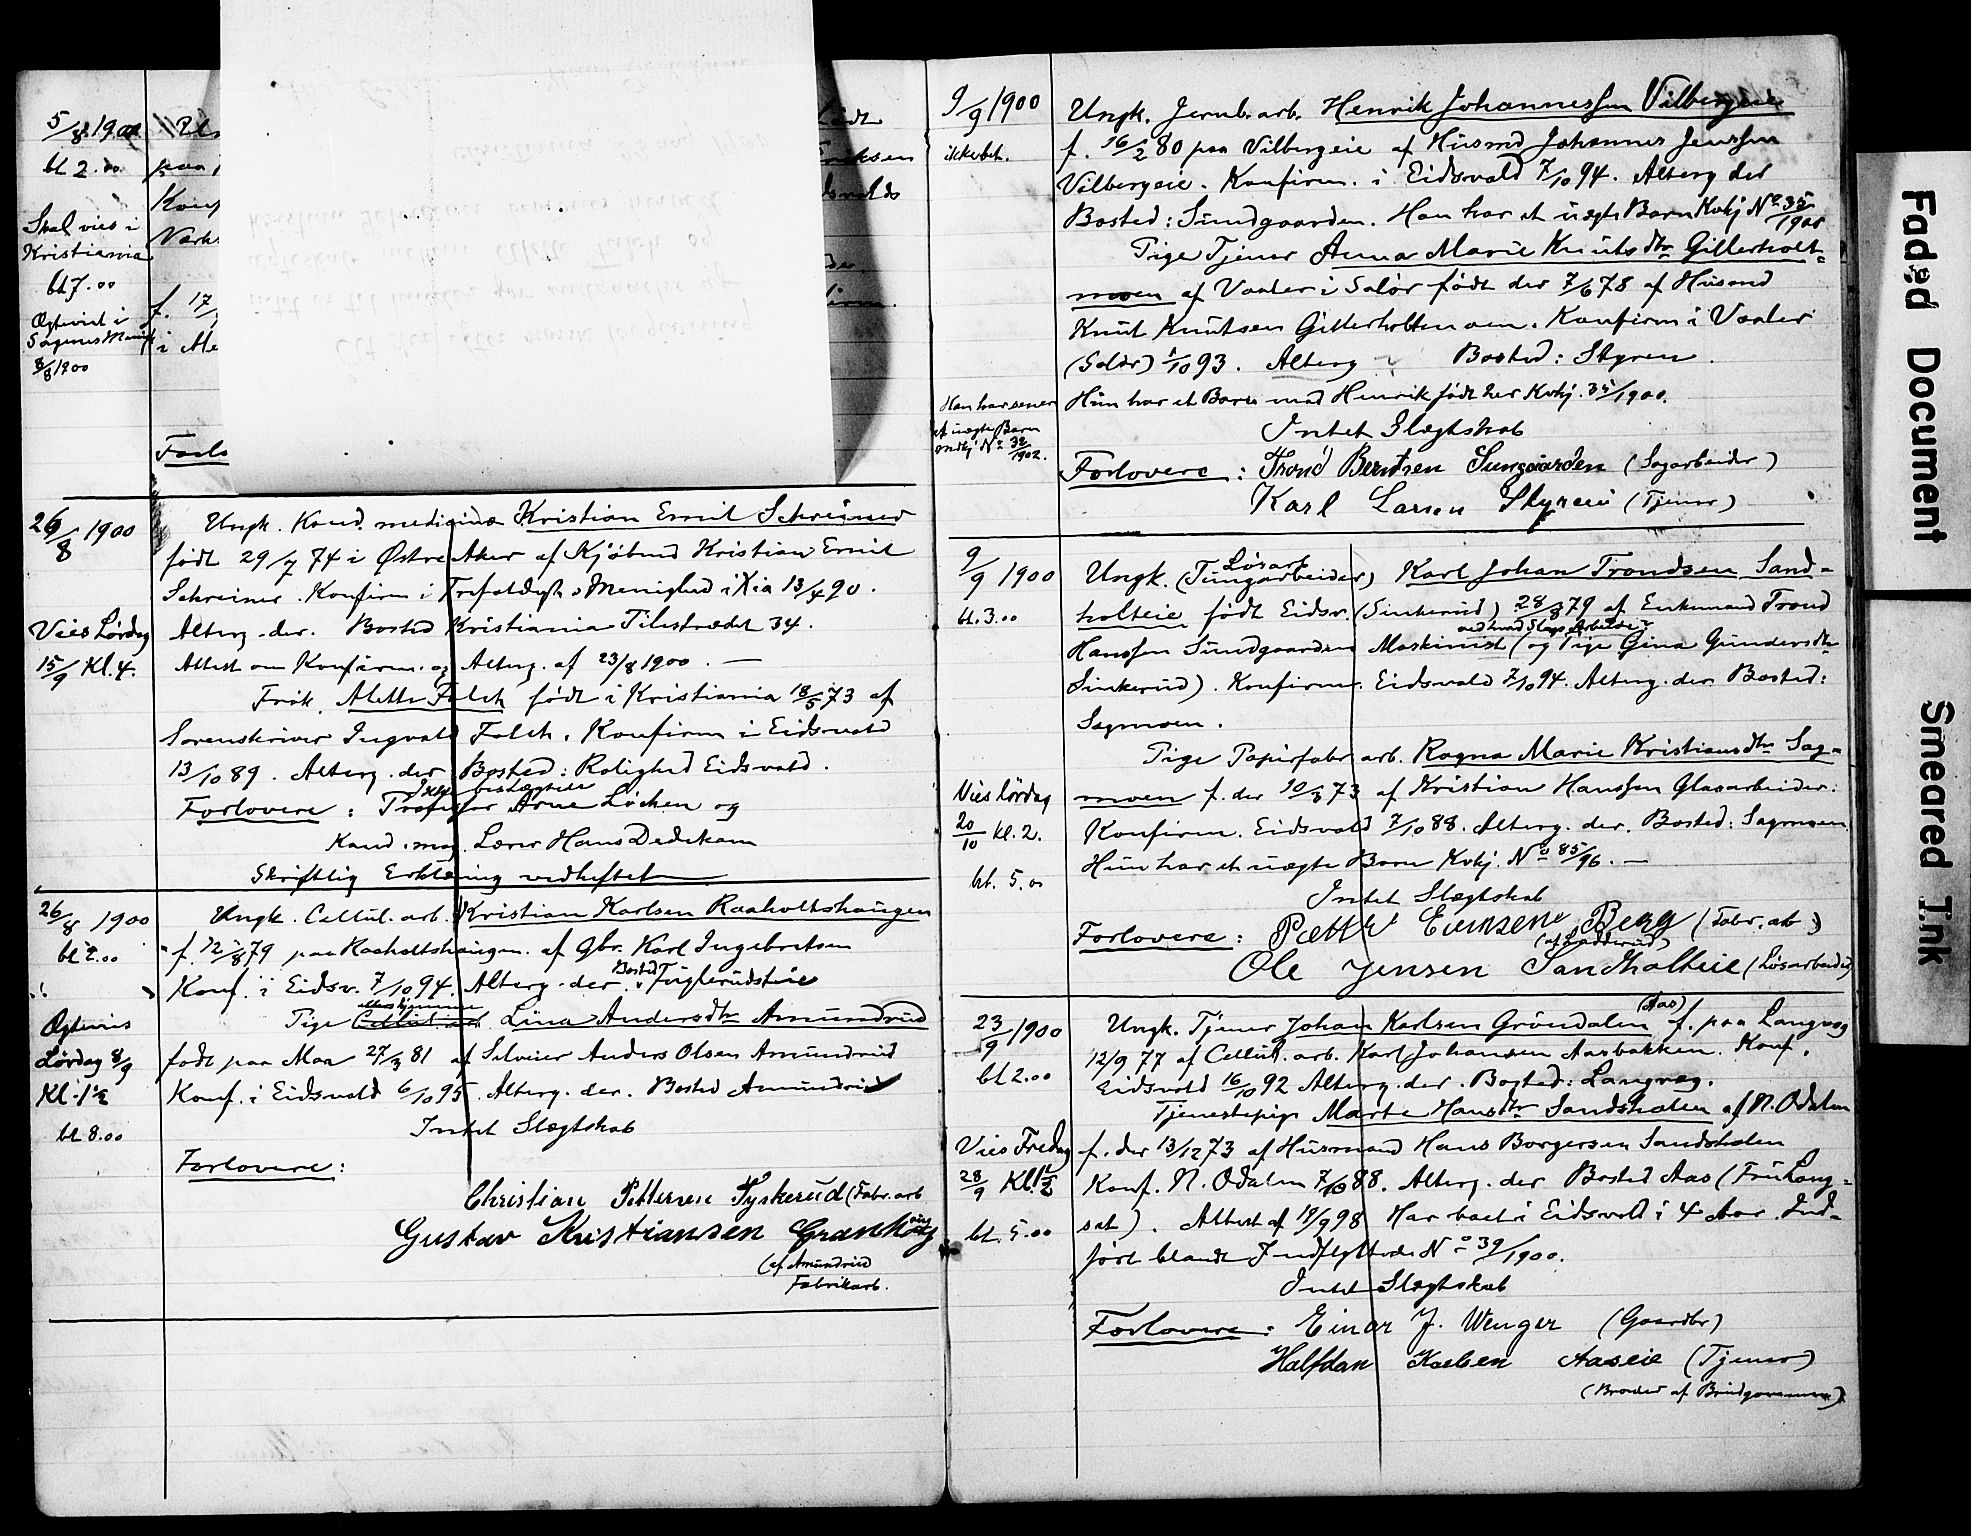 5/8 1900
bt 2.00
Skal vies i
Kristiania
bt 7.00
Ægteviet i
8/8 1900
paa
Konf
f. 17/
i
Forlo
født
26/8 1900
Vies Lørdag
15/9 Kl. 4.
Ungk. Kand. medicinæ Kristian Emil Schreiner
født 29/7 74 i Østre Aker af Kjøbmd Kristian Emil
Schreiner. Konfirm i Trefoldigh.s Menighed i Xia 13/4 90.
Alterg. der. Bosted Kristiania Pilestrædet 34.
Attest om Konfirm. og Alterg. af 23/8 1900. —
Frøk. Alette Falch født i Kristiania 18/5 73 af
Sorenskriver Ingvald Falch. Konfirm i Eidsvold
13/10 89. Alterg. der. Bosted: Rolighed Eidsvold.
Ikke beslægtede
Forlovere: Professor Arne Löchen og
Kand. mag. Lærer Hans Dedekam
Skriftlig Erklæring vedheftet
26/8 1900
bt 2.00
Ægtevies
Lørdag 8/9
Kl. 1½
bt 8.00
Ungk. Cellul. arb. Kristian Karlsen Raaholtshaugen
f. 12/8 79 paa Raaholtshaugen af Gbr. Karl Ingebretsen
Konf. i Eidsv. 7/10 94. Alterg. der. Bosted Fuglerudseie
Pige Lina Andersdtr Amundrud
født paa Moa 27/3 81 af Selveier Anders Olsen Amundrud
Konf. i Eidsvold 6/10 95. Alterg. der. Bosted Amundrud
Intet Slægtskab
Forlovere:
Christian Pettersen Tyskerud (Fabr. arb
Gustav Kristiansen Granhaug
(af Amundrud
Fabrikarb.
9/9 1900
ikke bet.
Han har senere
et uægte Barn
Mdkj No 32/1902.
Ungk. Jernb. arb. Henrik Johannessen Vilbergeie
f. 16/2 80 paa Vilbergeie af Husmd Johannes Jenssen
Vilbergeie. Konfirm. i Eidsvold 7/10 94. Alterg. der
Bosted: Sundgaarden. Han har et uægte Barn Kvkj No 35/1900
Pige Tjener Anna Marie Knutsdtr Gitterholt-
moen af Vaaler i Solör født der 7/6 78 af Husmd
Knut Knutsen Gitterholtmoen. Konfirm i Vaaler
(Solör) 1/10 93. Alterg Bosted: Styren.
Hun har et Barn med Henrik født her Kvkj. 35/1900.
Intet Slægtskab
Forlovere: Trond Berntsen Sungaarden (Sagarbeider)
Karl Larsen Styreeie (Tjener)
9/9 1900
bt. 3.00
Vies lördag
20/10 kl. 2.
bt. 5.00
Løsarb
Ungk. (Tungarbeider) Karl Johan Trondsen Sand-
holteie født Eidsv. (Sinkerud) 28/8 79 af Enkemand Trond
Hanssen Sundgaarden Maskinist (og Pige Gina Gundersdtr
Sinkerud). Konfirm. Eidsvold 7/10 94. Alterg. der. Bosted:
Sagmoen.
Pige Papirfabr. arb. Ragna Marie Kristiansdtr Sag-
moen f. der 10/3 73 af Kristian Hanssen Glasarbeider.
Konfirm. Eidsvold 7/10 88. Alterg. der. Bosted: Sagmoen
Hun har et uægte Barn Kvkj. No 85/96. —
Intet Slægtskab
Forlovere: Petter Evensen Berg (Fabr. arb.)
(af Ladderud)
Ole Jensen Sandholteie (Løsarbeider
23/9 1900
bt 2.00
Vies Fredag
28/9 Kl. 1½
bt. 5.00
(Aas)
Ungk. Tjener Johan Karlsen Gröndalen f. paa Langvag
12/9 77 af Cellul. arb. Karl Johansen Aasbakken. Konf.
Eidsvold 16/10 92 Alterg. der. Bosted: Langvag.
Tjenestepige Marte Hansdtr Sandsholen af N. Odalen
f. der 13/12 73 af Husmand Hans Borgersen Sandsholen
Konf. N. Odalen 7/10 88. Alterg. der Bosted Aas (Fru Lang-
set). Attest af 19/9 98 Har boet i Eidsvold i 4 Aar. Ind-
ført blandt Indflyttede No 39/1900.
Intet Slægtskab
Forlovere: Einar J. Wenger (Gaardbr)
Halfdan Karlsen Aaseie (Tjener)
(Broder af Brudgommen)
Faded Document
Smeared Ink